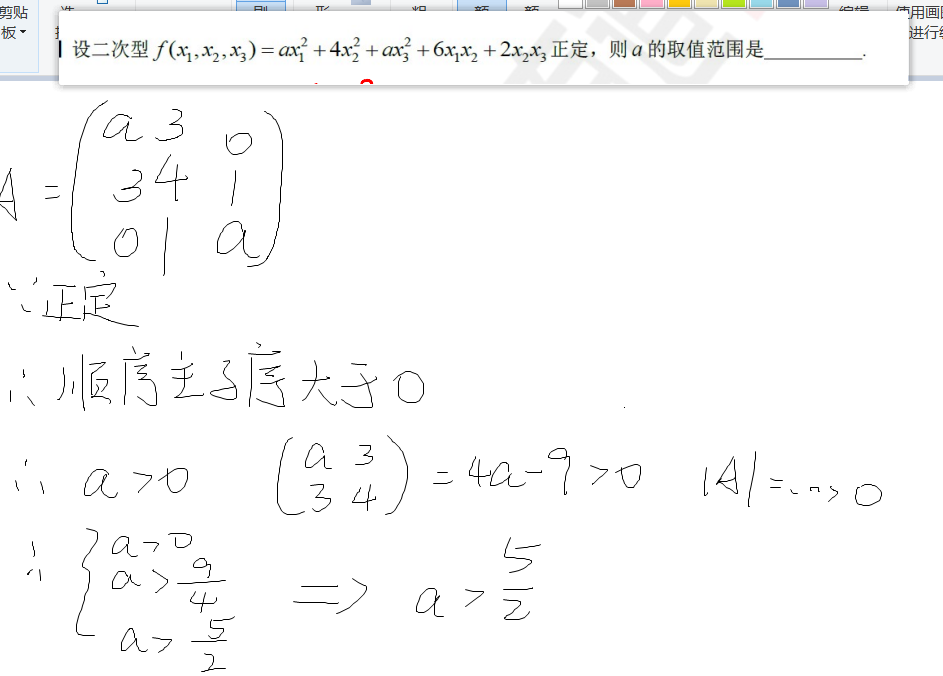 剪贴
板
使用画图
设二次型 f(x₁, x₂, x₃) = ax₁² + 4x₂² + ax₃² + 6x₁x₂ + 2x₂x₃ 正定，则 a 的取值范围是__________.
A = ( a 3 0
3 4 1
0 1 a )
∵ 正定
∴ 顺序主子序大于0
∴ a>0 ( a 3 ; 3 4 ) = 4a-9>0 |A| = ...>0
∴ { a>0
a> 9/4
a> 5/2
=> a > 5/2